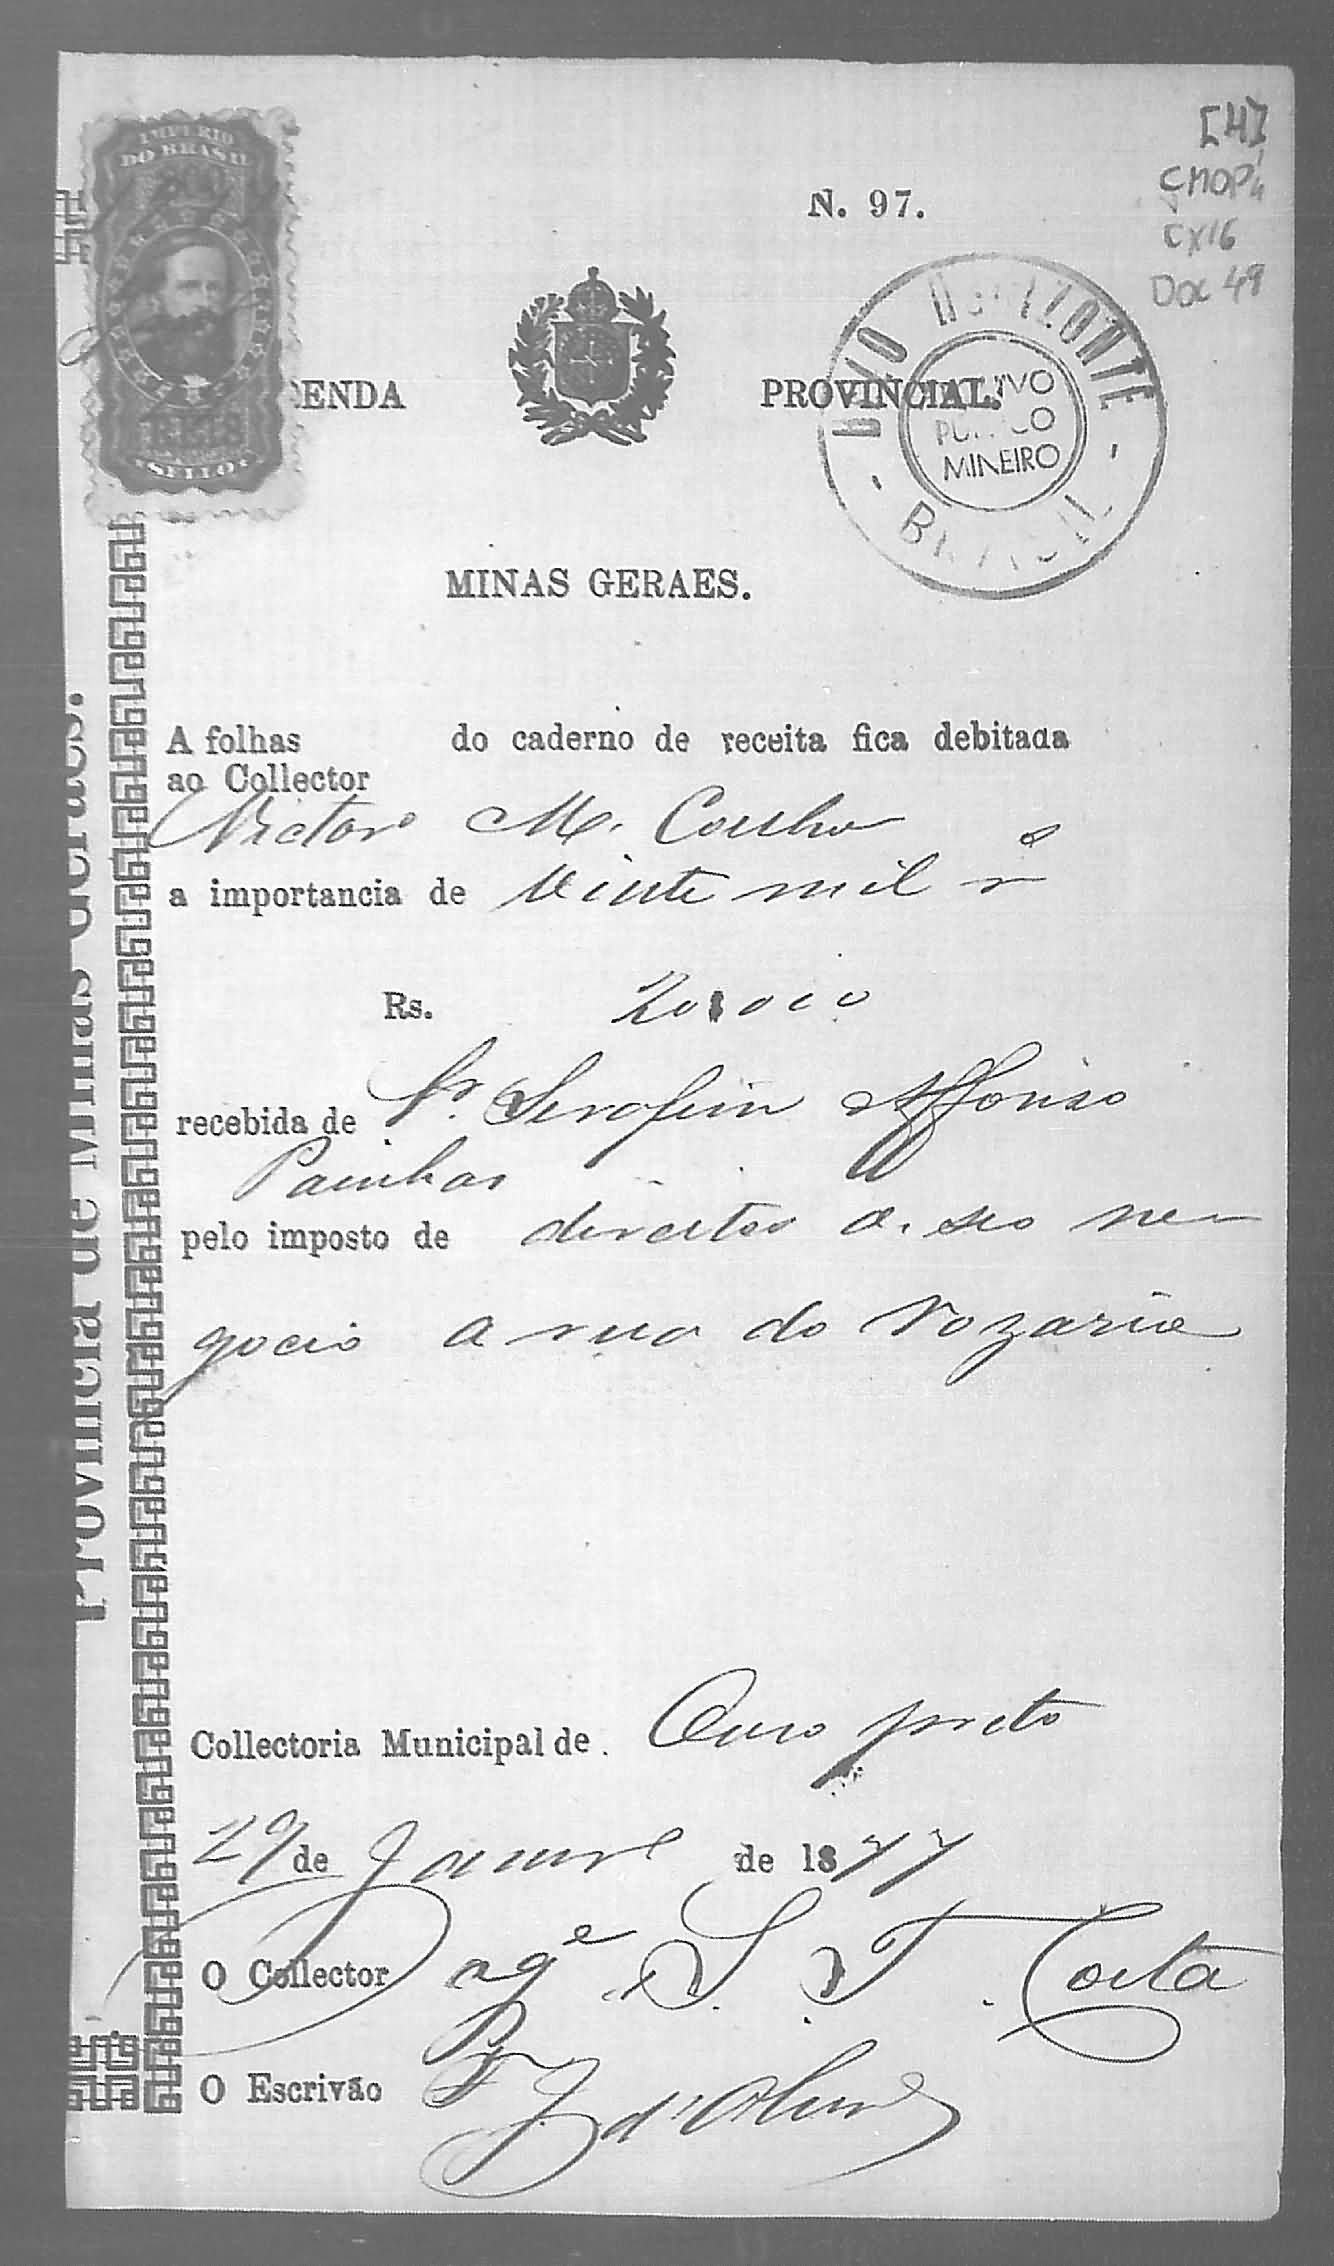 IMPERIO
DO BRASIL
SELLO
[4]
CMOP
CX16
Doc 49
N. 97.
BELO HORIZONTE
MINEIRO
BRASIL
ENDA PROVINCIAL.
MINAS GERAES.
Provincia de Minas Geraes.
A folhas do caderno de receita fica debitada
ao Collector
Victor M. Coelho
a importancia de Vinte mil rs
Rs. 20$000
recebida de Sr. Serafim Affonso
Painhas
pelo imposto de direitos de seo ne-
gocio a rua do Rozario
Collectoria Municipal de Ouro preto
29 de Janro de 1877
O Collector age S. T. Costa
O Escrivão F. J. d'